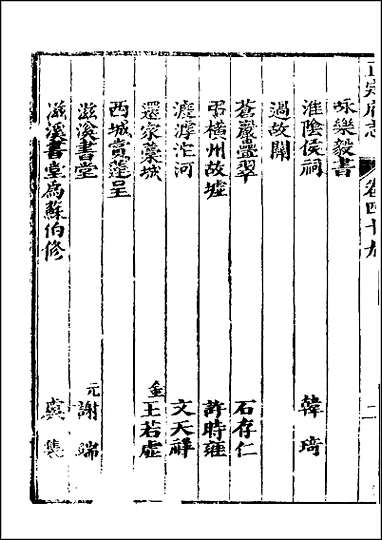 正定府志 卷四十九 二
詠樂毅書
淮陰侯祠 韓琦
過故關
蒼巖疊翠 石存仁
弔橫州故墟 許時雍
渡滹沱河 文天祥
還家藁城 金王若虛
西城賞蓮呈
滋溪書堂 元謝端
滋溪書堂爲蘇伯修 虞集